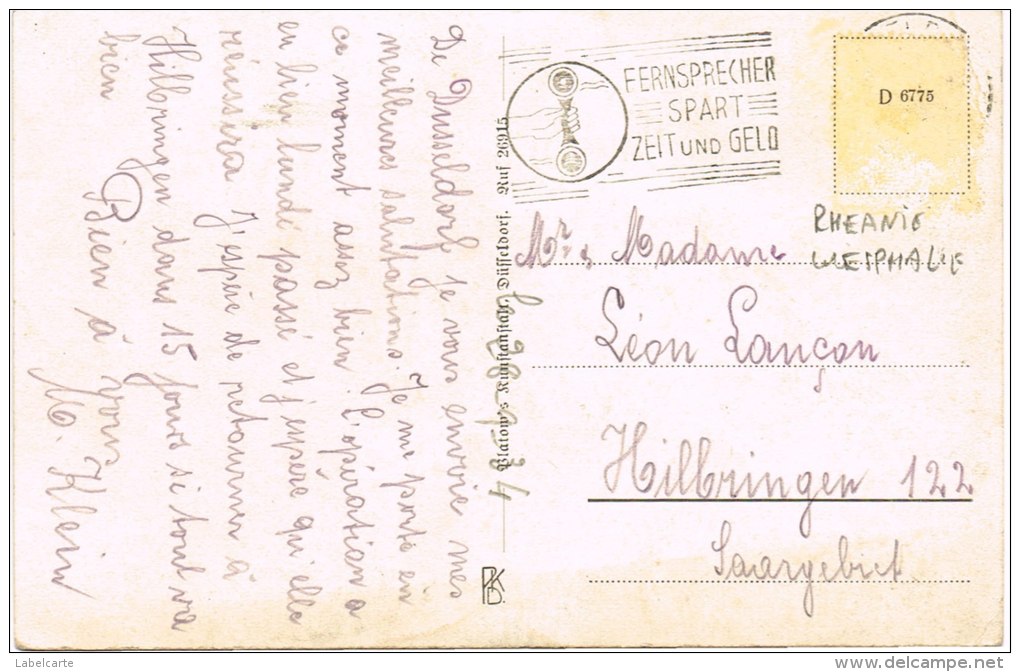 De Dusseldorf je vous envoie mes
meilleures salutations. Je me porte en
ce moment assez bien. L'opération a
eu lieu lundi passé et j'espère qu'elle
réussira. J'espère de retourner à
Hilbringen dans 15 jours si tout va
bien
Bien à vous
M. Klein
le 28.9.34
Platow's Kunstanstalt, Düsseldorf. Ruf 26915
FERNSPRECHER
SPART
ZEIT UND GELD
D 6775
RHEANIE
WESPHALIE
Mr & Madame
Léon Lançon
Hilbringen 122
Saargebiet
PKD.
Labelcarte
www.delcampe.net